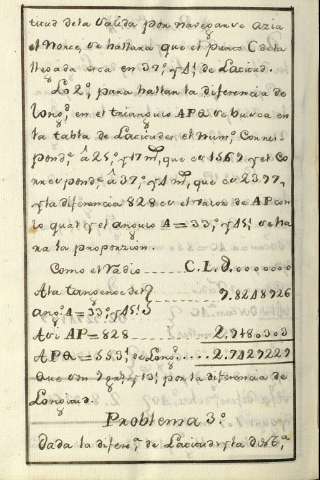 titud dela Salida por nabegarse azia
el Norte, se hallara que el punto C dela
llegada esta en 37°, y 41' de Latitud.
Lo 2°, para hallar la diferencia de
Long.d en el triangulo APQ se busca en
la tabla de Latitudes el num.o Corres
pond.te â 25°, y 17 m., que es 1569 y el Co
rrespond.te â 37°, y 41 m., que es 2397,
y la diferencia 828 es el valor de AP con
lo qual y el angulo A=33°, y 45' se ha
ra la proporzion.
Como el Radio C.L.D. 0000000
Ala tangente del 9.8248926
Ang.o A=33°, y 45'
Asi AP=828 2.9180303
A PQ=553' de Long.d .... 2.7429229
Que son 9 gr. y 13' por la diferencia de
Longitud.
Problema 3°
Dada la difer.a de Latitud y la de